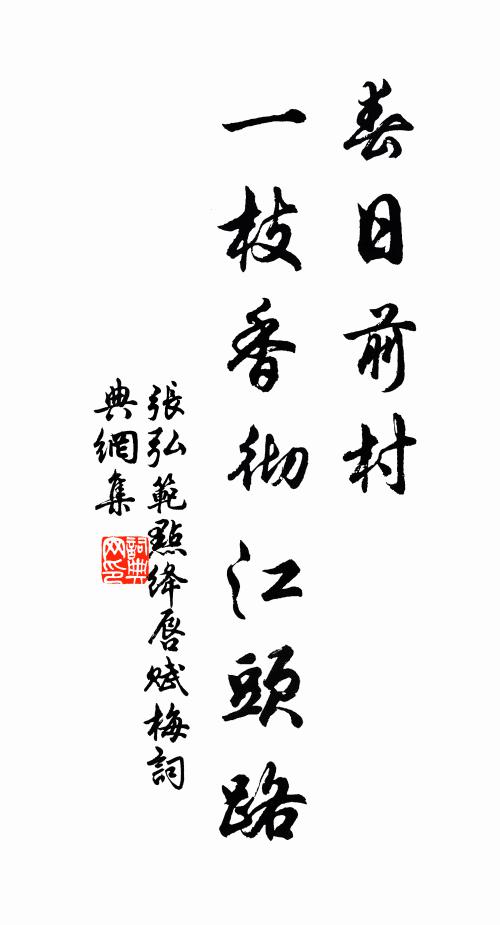 春日前村
一枝香彻江頭路
張弘範點绛唇赋梅詞
典網集
詞典
网印